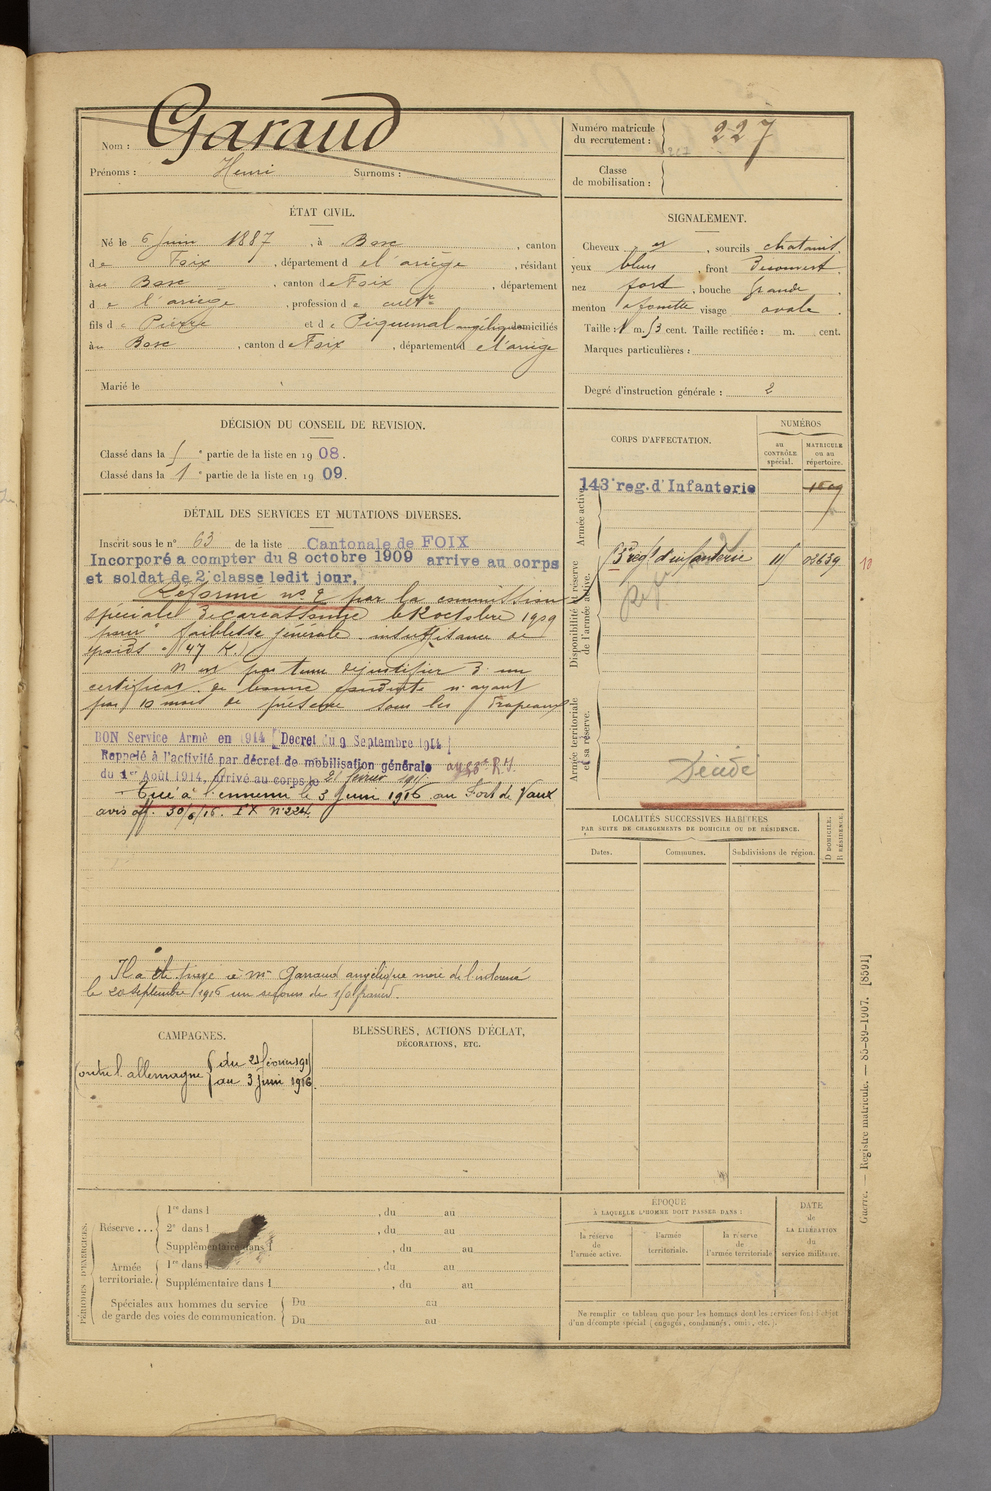 Nom : Garaud
Prénoms : Henri Surnoms :
Numéro matricule
du recrutement : 227
Classe
de mobilisation :
ÉTAT CIVIL.
Né le 6 Juin 1887, à Bosc, canton
de Foix, département de l'ariège, résidant
au Bosc, canton de Foix, département
de l'ariège, profession de cultr
fils de Pierre et de Piquemal angélique domiciliés
au Bosc, canton de Foix, département de l'ariège
Marié le
SIGNALEMENT.
Cheveux et, sourcils chatains.
yeux bleus, front Decouvert.
nez fort, bouche grande.
menton a fossette visage ovale.
Taille : 1 m. 53 cent. Taille rectifiée : m. cent.
Marques particulières :
Degré d'instruction générale : 2
DÉCISION DU CONSEIL DE REVISION.
Classé dans la 5e partie de la liste en 1908.
Classé dans la 1e partie de la liste en 1909.
DÉTAIL DES SERVICES ET MUTATIONS DIVERSES.
Inscrit sous le n° 63 de la liste Cantonale de FOIX
Incorporé a compter du 8 octobre 1909 arrive au corps
et soldat de 2e classe ledit jour,
Réformé n° 2 par la commission
spéciale de Carcassonne le octobre 1909
pour faiblesse générale insuffisance de
poids (47 K.)
n'est pas tenu de justifier d'un
certificat de bonne conduite n'ayant
pas 10 mois de présence sous les drapeaux
BON Service Armé en 1914 [Decret du 9 Septembre 1914]
Rappelé à l'activité par décret de mobilisation générale au 53e R.I.
du 1er Août 1914, arrivé au corps le 21 février 191
Tué à l'ennemi le 3 Juin 1916 au Fort de Vaux
avis off. 30/6/16. IX n° 2241
Il a été payé à Mme Garraud angélique mère de l'intéressé
le 20 septembre 1916 un secours de 150 francs.
CORPS D'AFFECTATION.
NUMÉROS
au
CONTRÔLE
spécial.
MATRICULE
ou au
répertoire.
Armée active.
143e reg. d'Infanterie
Disponibilité et réserve
de l'armée active.
53e regt d'infanterie 11 03639
10
Armée territoriale
et sa réserve.
Décédé
LOCALITÉS SUCCESSIVES HABITÉES
PAR SUITE DE CHANGEMENTS DE DOMICILE OU DE RÉSIDENCE.
Dates.
Communes.
Subdivisions de région.
D DOMICILE.
R RÉSIDENCE.
CAMPAGNES.
Contre l'allemagne du 21 février 191
au 3 Juin 1916.
BLESSURES, ACTIONS D'ÉCLAT,
DÉCORATIONS, ETC.
PÉRIODES D'EXERCICES.
Réserve ...
1re dans l , du au
2e dans l , du au
Supplémentaire dans l , du au
Armée
territoriale.
1re dans l , du au
Supplémentaire dans l , du au
Spéciales aux hommes du service
de garde des voies de communication.
Du au
Du au
ÉPOQUE
À LAQUELLE L'HOMME DOIT PASSER DANS :
la réserve
de
l'armée active.
l'armée
territoriale.
la réserve
de
l'armée territoriale
DATE
de
LA LIBÉRATION
du
service militaire.
Ne remplir ce tableau que pour les hommes dont les services font l'objet
d'un décompte spécial (engagés, condamnés, omis, etc.).
Guerre. — Registre matricule. — 85-89-1907. [8591]